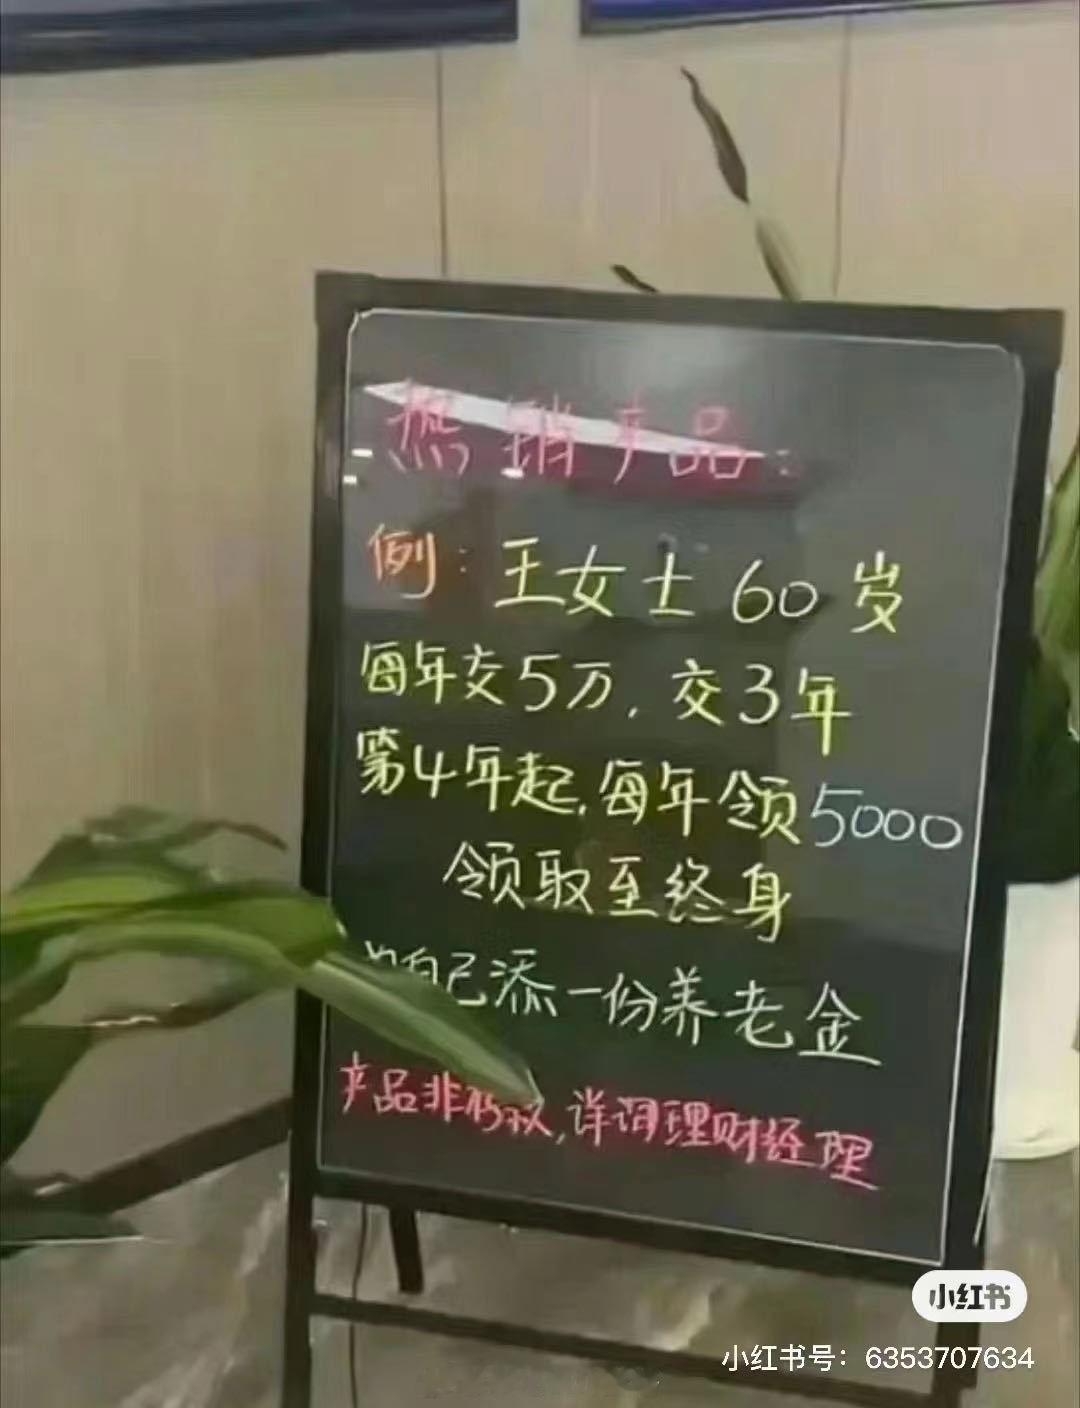 热销产品：
例：王女士 60 岁
每年交5万，交3年
第4年起，每年领5000
领取至终身
自己添一份养老金
产品非，详询理财经理
小红书
小红书号：6353707634